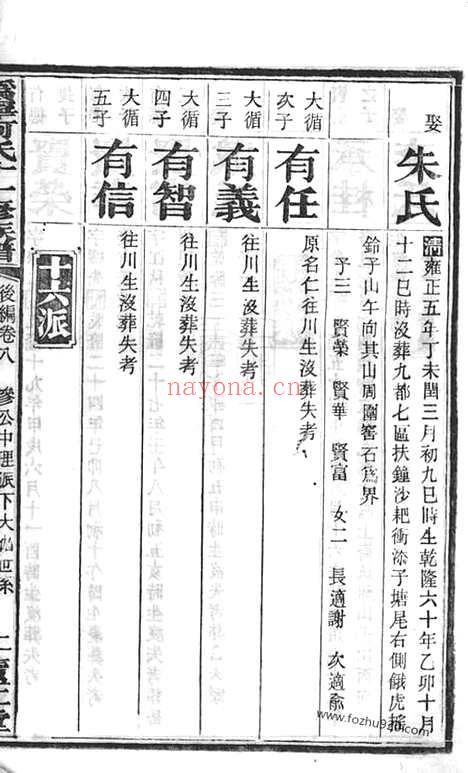 娶
朱氏
清雍正五年丁未閏三月初九巳時生乾隆六十年乙卯十月
十二巳時沒葬九都七區扶鐘沙耙衝涂子塘尾右側餓虎搖
鈴子山午向其山周圍窖石爲界
子三 賢榮 賢華 賢富 女二 長適謝 次適俞
大循
次子
有任
原名仁往川生沒葬失考
大循
三子
有義
往川生沒葬失考
大循
四子
有智
往川生沒葬失考
大循
五子
有信
往川生沒葬失考
十六派
何氏十一修族譜
後編卷八
公中理派下大
世系
nayona.cn
www.fozhu920.com